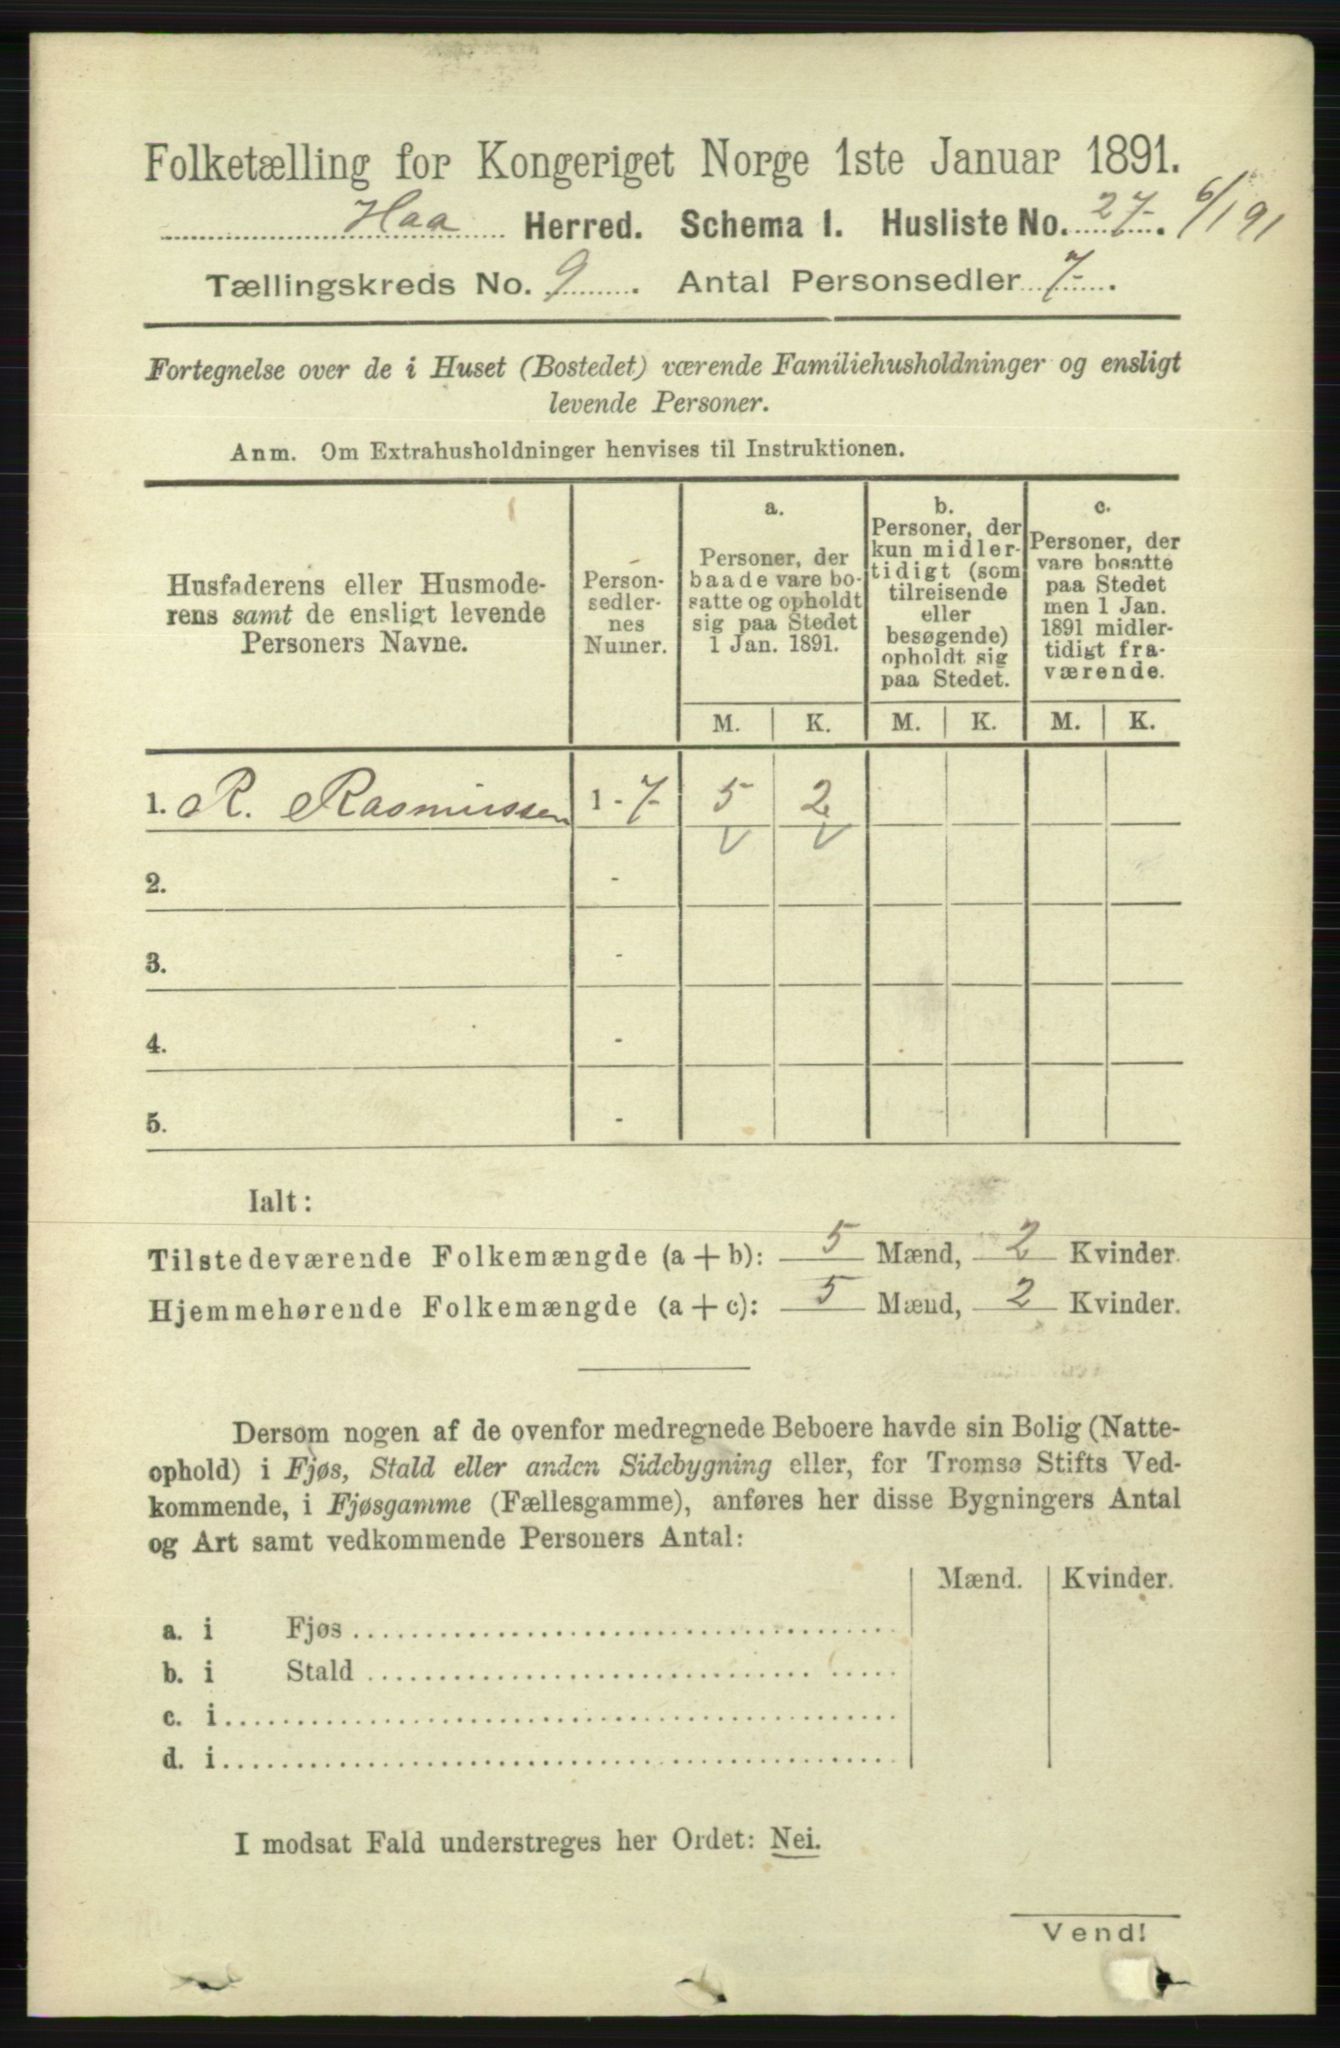 Folketælling for Kongeriget Norge 1ste Januar 1891.
Haa Herred. Schema I. Husliste No. 27. 6/1 91
Tællingskreds No. 9. Antal Personsedler 7.
Fortegnelse over de i Huset (Bostedet) værende Familiehusholdninger og ensligt
levende Personer.
Anm. Om Extrahusholdninger henvises til Instruktionen.
Husfaderens eller Husmode-
rens samt de ensligt levende
Personers Navne.
Person-
sedler-
nes
Numer.
a.
Personer, der
baade vare bo-
satte og opholdt
sig paa Stedet
1 Jan. 1891.
b.
Personer, der
kun midler-
tidigt (som
tilreisende
eller
besøgende)
opholdt sig
paa Stedet.
c.
Personer, der
vare bosatte
paa Stedet
men 1 Jan.
1891 midler-
tidigt fra-
værende.
M. K. M. K. M. K.
1. R. Rasmussen 1 - 7 5 2
2. -
3. -
4. -
5. -
Ialt:
Tilstedeværende Folkemængde (a + b): 5 Mænd, 2 Kvinder.
Hjemmehørende Folkemængde (a + c): 5 Mænd, 2 Kvinder.
Dersom nogen af de ovenfor medregnede Beboere havde sin Bolig (Natte-
ophold) i Fjøs, Stald eller anden Sidebygning eller, for Tromsø Stifts Ved-
kommende, i Fjøsgamme (Fællesgamme), anføres her disse Bygningers Antal
og Art samt vedkommende Personers Antal:
Mænd. Kvinder.
a. i Fjøs
b. i Stald
c. i
d. i
I modsat Fald understreges her Ordet: Nei.
Vend!